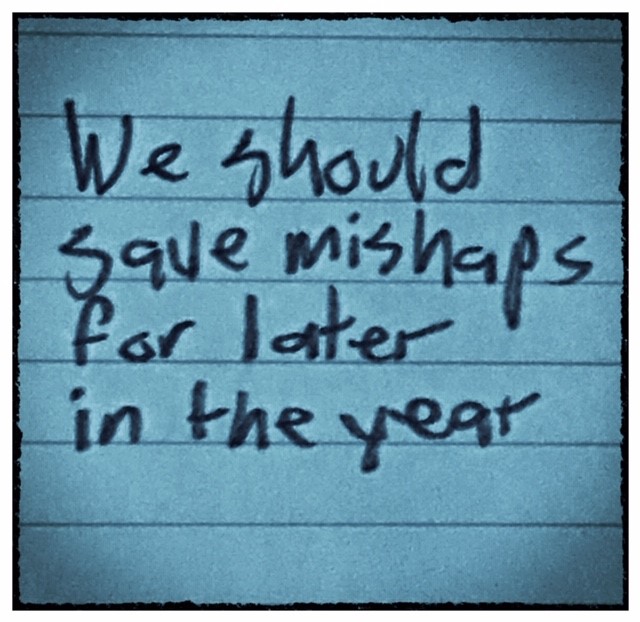 We should
save mishaps
for later
in the year